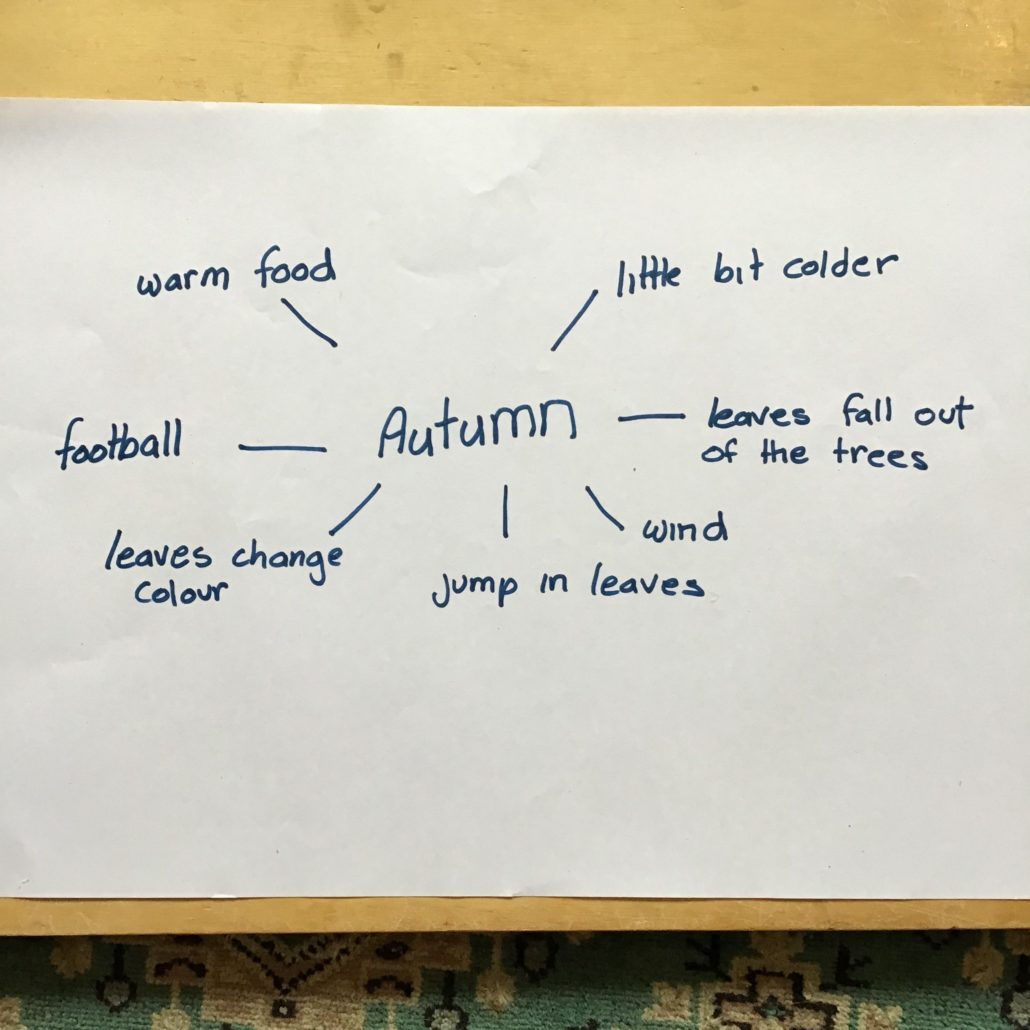 warm food
little bit colder
football
Autumn
leaves fall out
of the trees
leaves change
colour
jump in leaves
wind